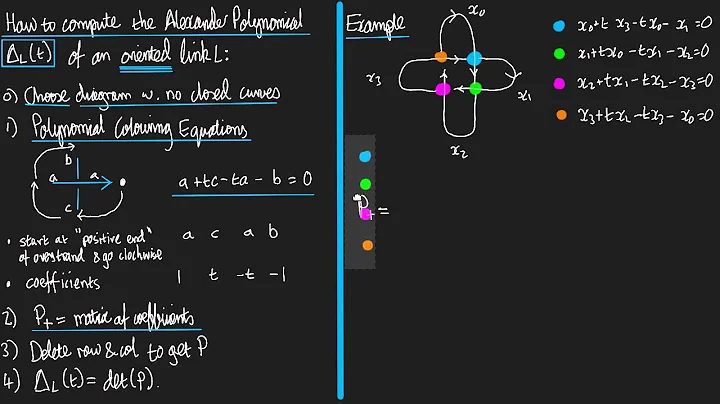 How to compute the Alexander Polynomial
Δ_L(t) of an oriented link L:
0) Choose diagram w. no closed curves
1) Polynomial Colouring Equations
b
a a
c
a+tc-ta-b=0
• start at "positive end" of overstrand & go clockwise
a c a b
• coefficients
1 t -t -1
2) P₊ = matrix of coefficients
3) Delete row & col to get P
4) Δ_L(t) = det(P).
Example
x₀
x₃
x₁
x₂
x₀+t x₃-tx₀-x₁=0
x₁+tx₀-tx₁-x₂=0
x₂+tx₁-tx₂-x₃=0
x₃+tx₂-tx₃-x₀=0
P₊ =